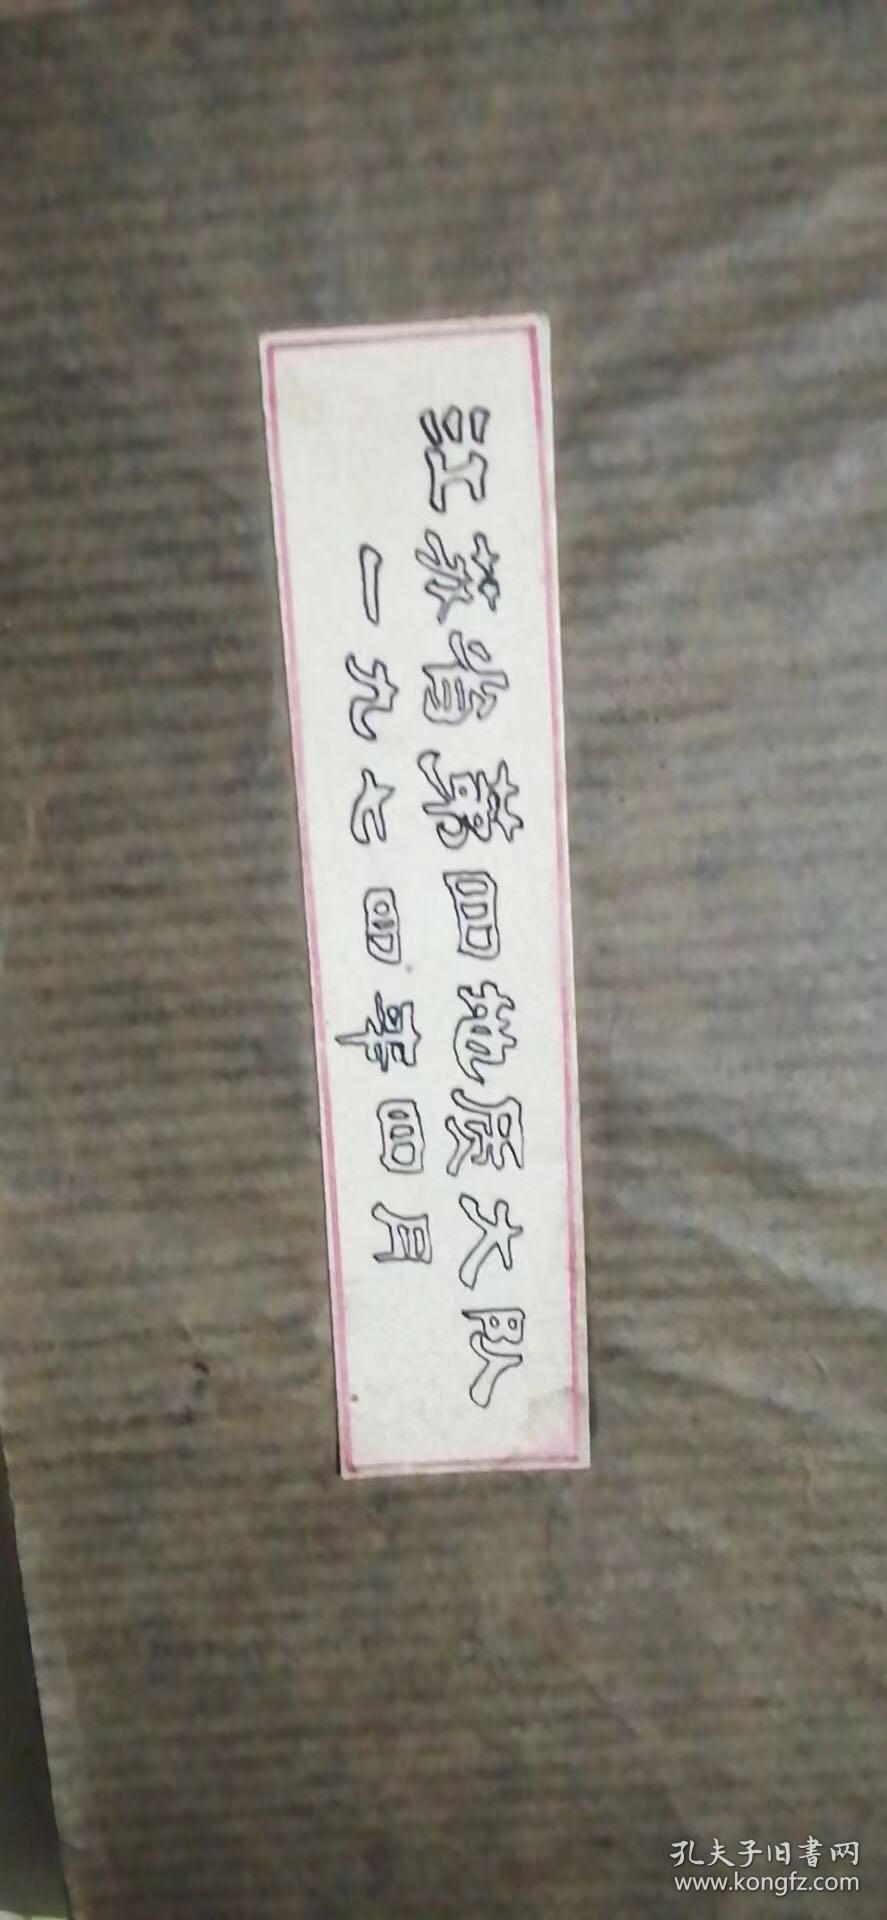 江苏省第四地质大队
一九七四年四月
孔夫子旧書网
www.kongfz.com